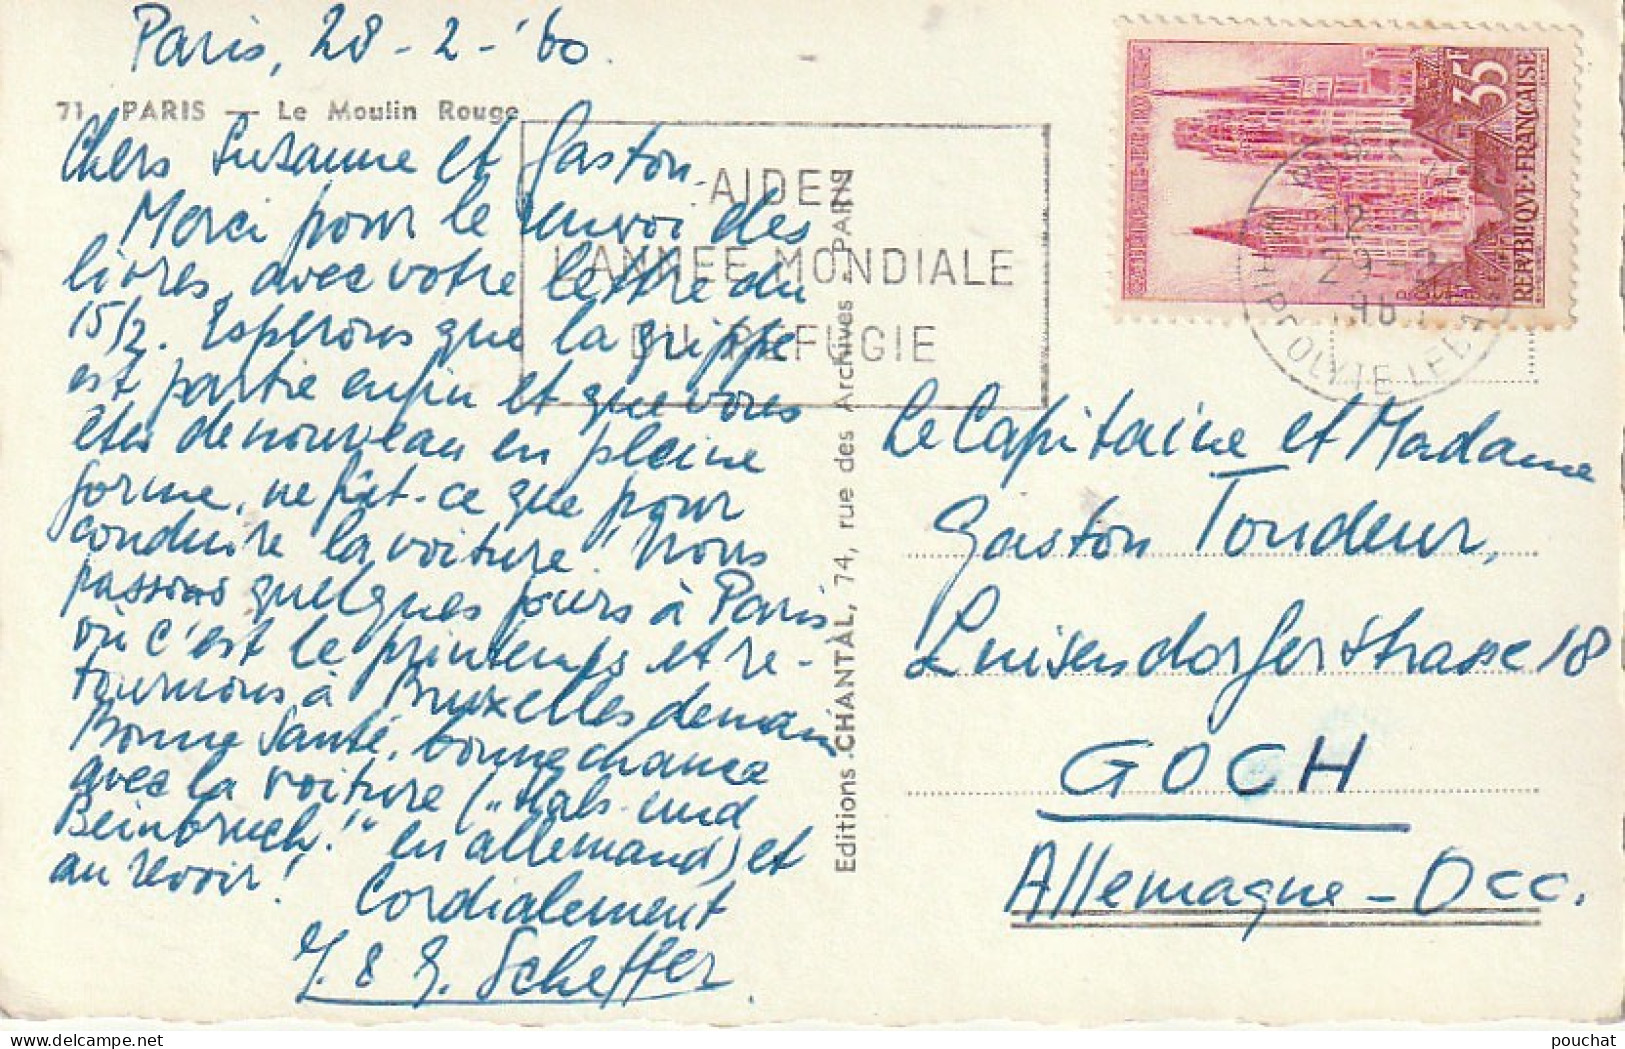 Paris, 28-2-'60.
71 PARIS — Le Moulin Rouge
Chers Suzanne et Gaston.
Merci pour le envoi des
livres, avec votre lettre du
15/2. Esperons que la grippe
est partie enfin et que vous
etes de nouveau en pleine
forme, ne fût-ce que pour
conduire la voiture! Nous
passons quelques jours à Paris
où c'est le printemps et re-
tournons à Bruxelles demain
Bonne Santé, bonne chance
avec la voiture („Hals- und
Beinbruch!" en allemand) et
au revoir!
Cordialement
Scheffer
AIDEZ
L'ANNEE MONDIALE
DU REFUGIE
Editions CHANTAL, 74, rue des Archives - PARIS
35F
REPVBLIQVE·FRANÇAISE
CATHEDRALE DE ROUEN
12
29-2
196
Le Capitaine et Madame
Gaston Tondeur,
Luisendorferstrasse 18
GOCH
Allemagne-Occ.
pouchat